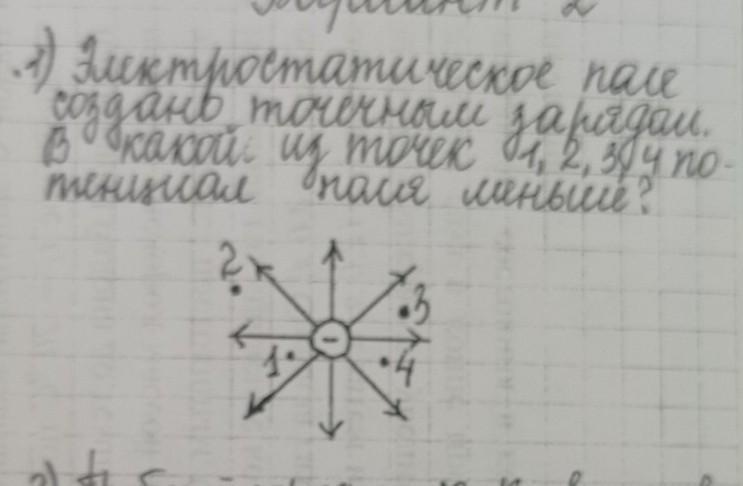 Вариант 2
1) Электростатическое поле
создано точечным зарядом.
В какой из точек 1, 2, 3, 4 по-
тенциал поля меньше?
2
3
-
1
4
2)